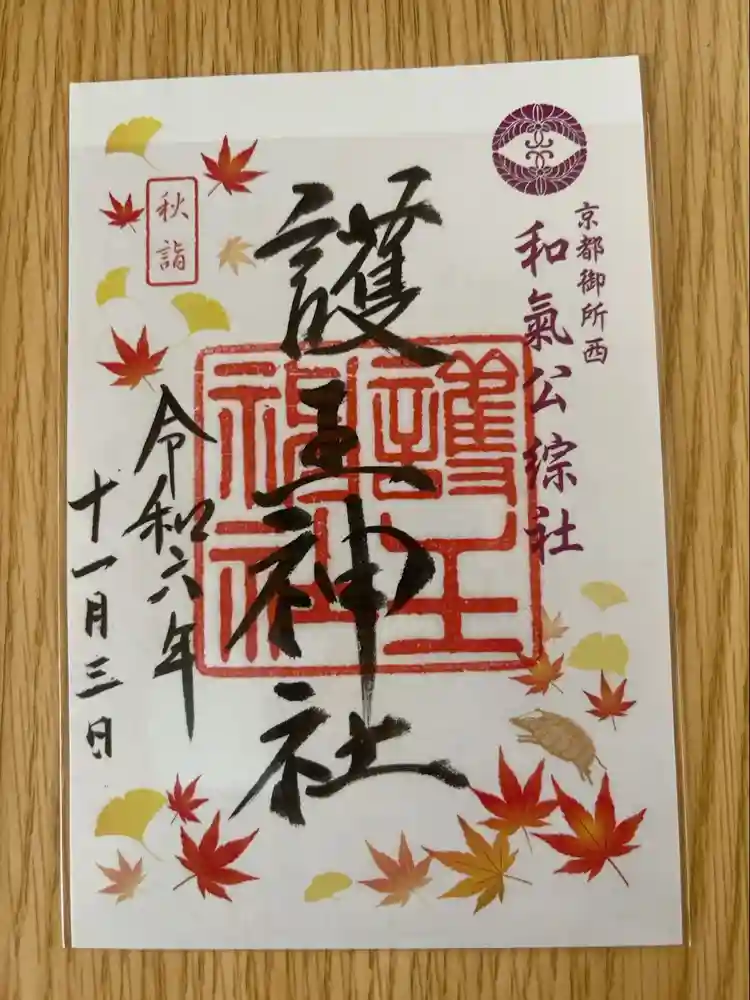 京都御所西
和氣公綜社
護王神社
護王
神社
秋詣
令和六年
十一月三日